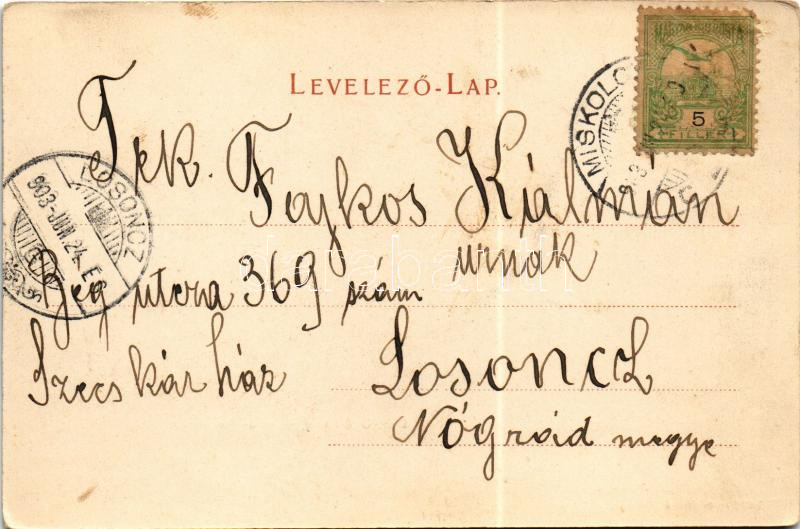 LEVELEZŐ-LAP.
MAGYAR KIR. POSTA
5
FILLÉR
MISKOLC
LOSONCZ
903-JUN.24. E
Tek. Fajkos Kálmán
urnak
Jég utcza 369 szám
Szecskár ház
Losoncz
Nógrád megye
darabanth